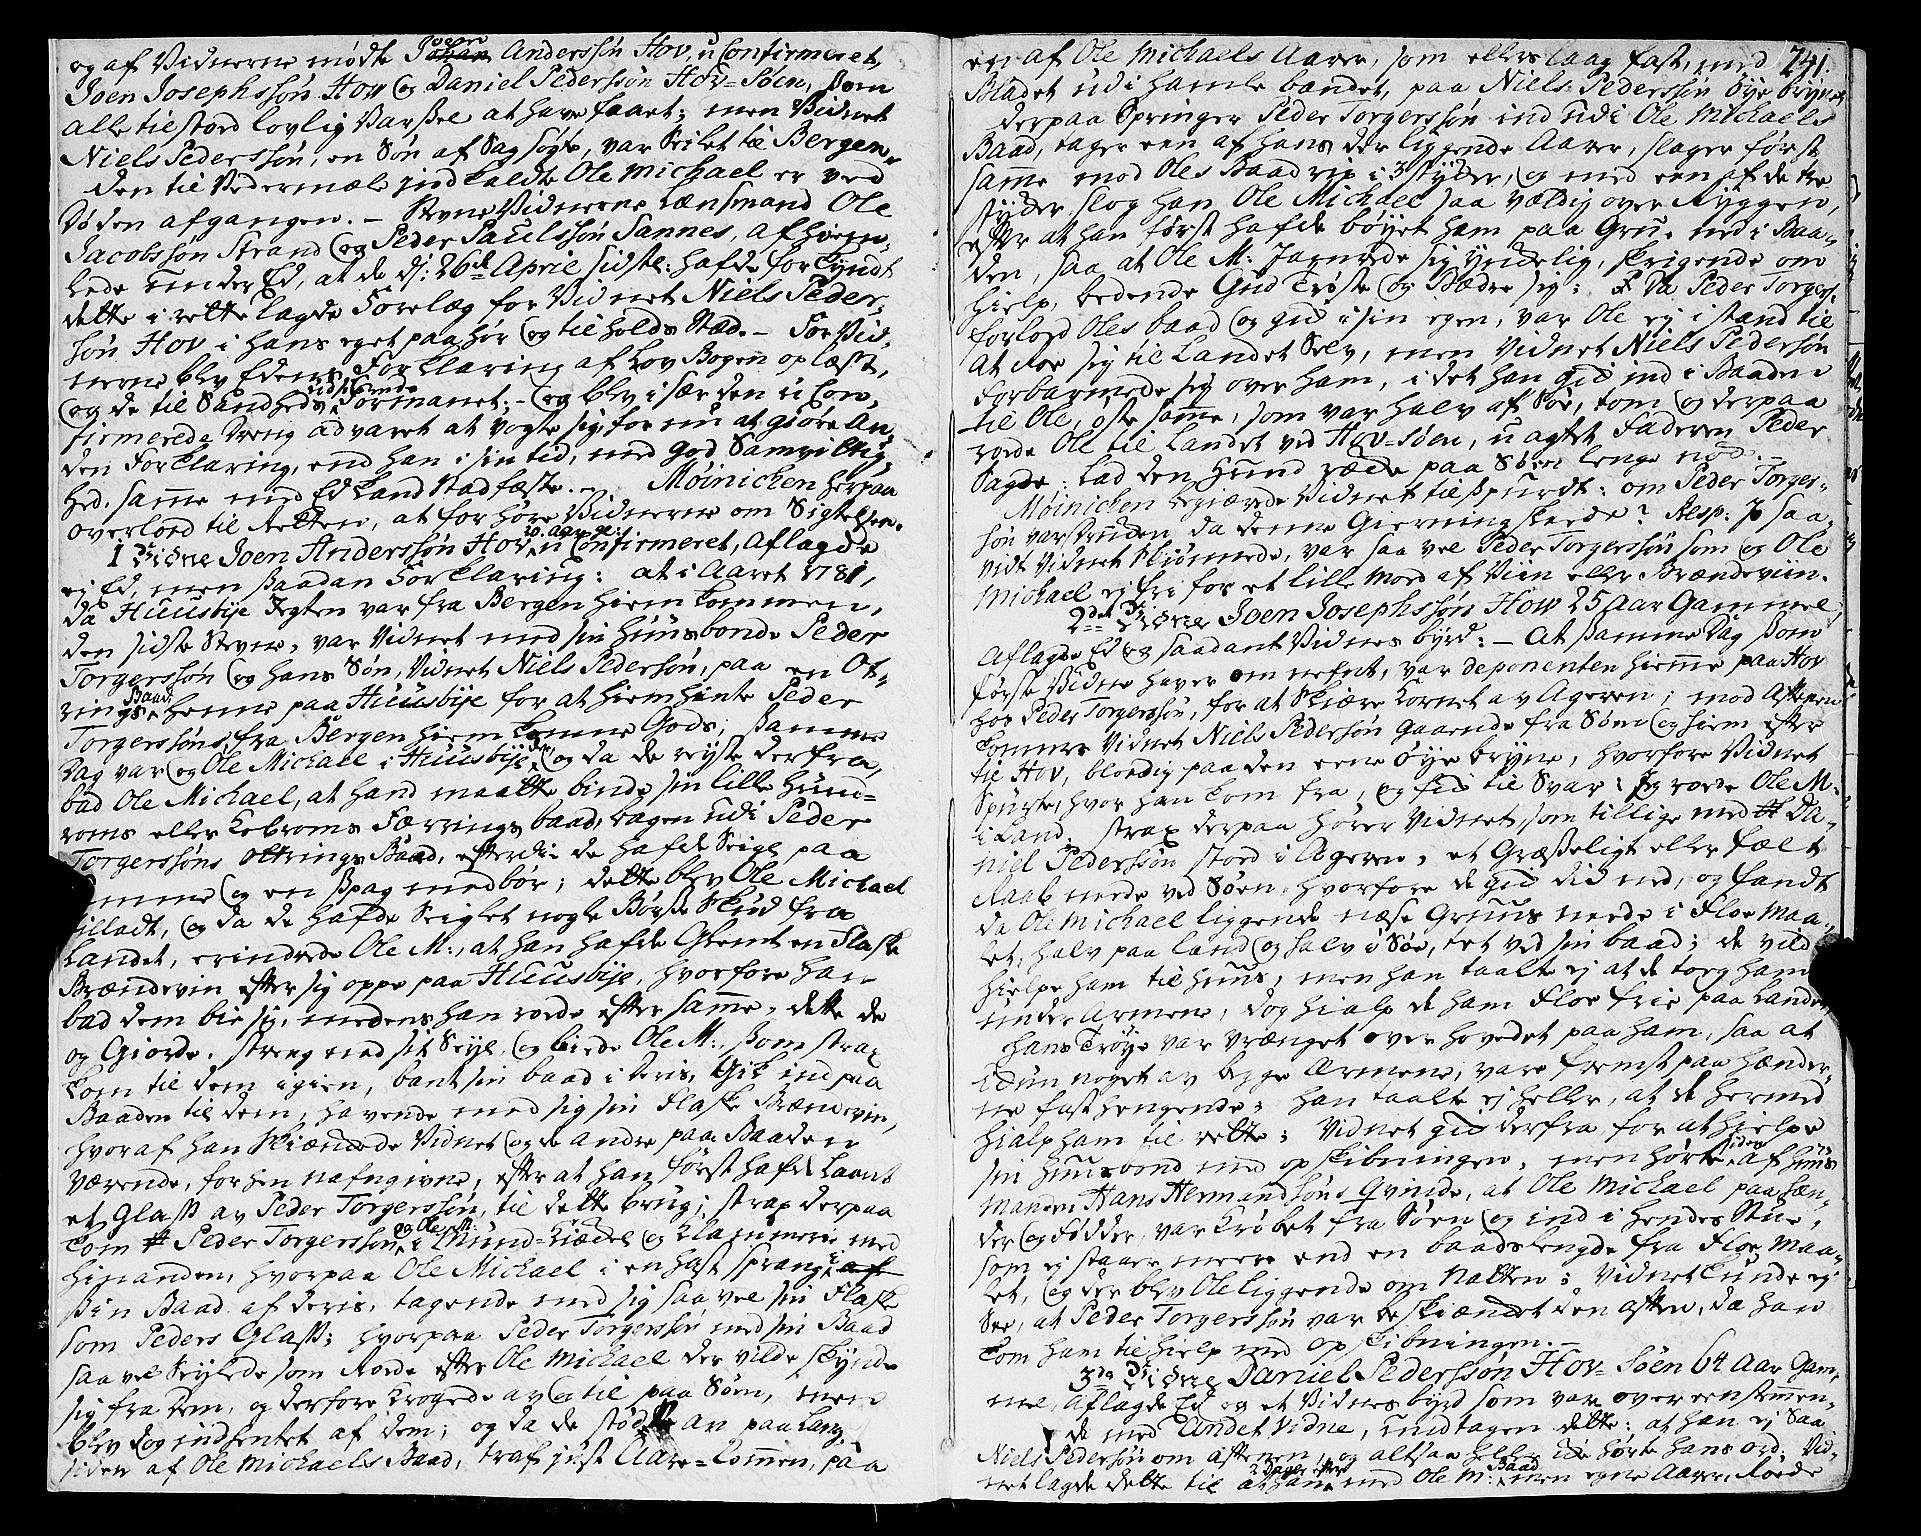 og af Vidnerne mødte Joen Anderssøn Hov, u Confirmeret,
Joen Josephssøn Hov og Daniel Pederssøn Hov-Søen, som
alle tilstod lovlig Varsel at have faaet; men Vidnet
Niels Pederssøn, en Søn af Sagsøgte, var Seilet til Bergen.
den til Vedermæle indkaldte Ole Michael er ved
Døden afgangen. – StevneVidnerne Lænsmand Ole
Jacobssøn Strand og Peder Paulssøn Sannes, afhiem-
lede under Ed, at de d: 26de April sidstl: hafde forkyndt
dette i rette lagde Forelæg for Vidnet Niels Peder-
søn Hov i hans eget paahør og tilholds Stæd. – For Vid-
nerne blev Edens Forklaring af Lov Bogen oplæst,
og de til Sandheds udsigende Formanet; – og blev i sær den u Con-
firmerede Dreng advaret at vogte sig for nu at giøre An-
den Forklaring, end han i sin tid, med god Samvittig-
hed, samme med Ed kand Stadfæste. – Møinichen herpaa
overlod til Retten, at forhøre Vidnerne om Sigtelsen.
1 Vidne Joen Anderssøn Hov, 20 Aar gl: u Confirmeret, aflagde
ej Ed, men saadan Forklaring: at i Aaret 1781,
da Huusbye Jegten var fra Bergen hiemkommen,
den sidste Stevne, var Vidnet med sin Huusbonde Peder
Torgerssøn og hans Søn, Vidnet Niels Pedersøn, paa en Ot-
rings Baad henne paa Huusbye for at hiemhente Peder
Torgerssøns fra Bergen hiemkomne Gods; samme
Dag var og Ole Michael i Huusbye, og da de reyste derfra,
bad Ole Michael, at hand maatte binde sin lille Hund-
roms eller Kobroms Færrings baad, bagen udi Peder
Torgerssøns Ottrings Baad, efterdi de hafde Seigl paa
samme og en spag medbør; dette blev Ole Michael
tilladt, og da de hafde Seiglet nogle Børse Skud fra
Landet, erindrede Ole M:, at han hafde Glemt en Flaske
Brændevin efter sig oppe paa Huusbye, hvorfore han
bad dem bie sig, medens han roede efter samme, dette de
og Giorde. streg med sit Seyl, og biede Ole M:, som strax
kom til dem igien, bant sin baad i deris, Gik ind paa
Baaden til dem, havende med sig sin Flaske Brændevin,
hvoraf han Skiænkede Vidnet og de andre paa Baaden
Værende, forhen nafngivne, efter at han først hafde Laant
et Glass av Peder Torgerssøn, til dette brug; strax derpaa
kom Peder Torgerssøn og Ole M: i Mund-Kiæde og Klammerie med
hinanden, hvorpaa Ole Michael i en hast sprang i
sin Baad af deris, tagende med sig saavel sin Flaske
som Peders Glass; hvorpaa Peder Torgerssøn med sin Baad
saa vel Seylede som Roede efter Ole Michael der vilde skynde
sig fra dem, og derfore krogede av og til paa Søen, men
blev dog indhentet af dem; og da de stødte an paa Lang-
siden af Ole Michaels Baad, traf just Aare-Lommen, paa
241
en af Ole Michaels Aarer, som ellers laag fast, med
Bladet udi hamle bandet, paa Niels Pederssøn øye brynet,
derpaa springer Peder Torgerssøn ind udi Ole Michaels
Baad, tager een af hans der liggende Aarer, slager først
samme mod Oles Baad rip i 3 stykker, og med een af de tre
stykker slog han Ole Michael saa vældig over Ryggen,
efter at han først hafde bøyet ham paa Gru, ned i Baa-
den, saa at Ole M: Jamrede sig yndelig, skrigende om
hielp, bedende Gud Trøste og Bædre sig: Da Peder Torgers-
forlod Oles baad og gik i sin egen, var Ole ej i stand til
at Roe sig til Landet Selv, men Vidnet Niels Pedersøn
forbarmede sig over ham, i det han gik ind i Baaden
til Ole, øste samme, som var halv af Søe, tom og derpaa
roede Ole til Landet ved Hov-Søen, u agtet Faderen Peder
Sagde: Lad den Hund ræke paa Søen lenge nok. –
Møinichen begiærede Vidnet tilspurdt: om Peder Torger-
søn var drukken da denne Gierning skeede? Resp: Jo saa-
vidt Vidnet skiønnede, var saa vel Peder Torgerssøn som og Ole
Michael ej fri for et lille Mord af Viin eller Brændeviin.
2det Vidne Joen Josephssøn Hov 25 Aar Gammel,
Aflagde Ed og saadant Vidnes byrd: – At samme Dag som
første Vidne haver om nefnt, var deponenten hiemme paa Hov
hos Peder Torgerssøn, for at Skiære Kornet av Ageren; mod Aftenen
kommer Vidnet Niels Pedersøn gaaende fra Søen og hiem efter
til Hov, blodig paa den eene øye bryne, hvorfore Vidnet
Spurte, hvor han kom fra, og fik til Svar: Jeg roede Ole M:
i Land. strax derpaa hører Vidnet, som tillige med Da-
niel Pederssøn stod i Ageren, et Græsseligt eller fælt
Raab nede ved Søen, hvorfore de gik did ned, og fandt
da Ole Michael liggende næse Gruus nede i Floe Maa-
let, halv paa land og halv i Søe, tet ved sin baad; de vilde
hielpe ham til huus, men han taalte ej at de tog ham
under Armene, dog hialp de ham Floe frie paa Landet,
hans Trøye var vrænget over hovedet paa ham, saa at
kun noget av begge Armene, vare fremst paa Hænder-
ne fast hengende; han taalte ej heller, at de hermed
hialp ham til rette; Vidnet gik derfra for at hielpe
sin Huusbond med opskibningen, men hørte siden af Huus
manden Hans Hermandssøns Qvinde, at Ole Michael paa Hæn-
der og Fødder, var krøbet fra Søen og ind i hendes Stue,
som ej staar meere end en baadslengde fra Floe Maa-
let, og der blev Ole liggende om Natten; Vidnet kunde ej
See, at Peder Torgerssøn var beskiænket den aften, da han
kom ham til hielp med opskibningen. –
3de Vidne Daniel Pederssøn Hov-Søen 64 Aar Gam-
mel, aflagde Ed og et Vidnesbyrd som var over eenstemmen-
de med Andet Vidne, undtagen dette; at han ej Saa
Niels Pedersøn om aftenen, og altsaa heller ikke hørte hans ord. Vid-
net lagde dette til at han 2 dager efter med Ole M: Baad men egne Aarer, Roede